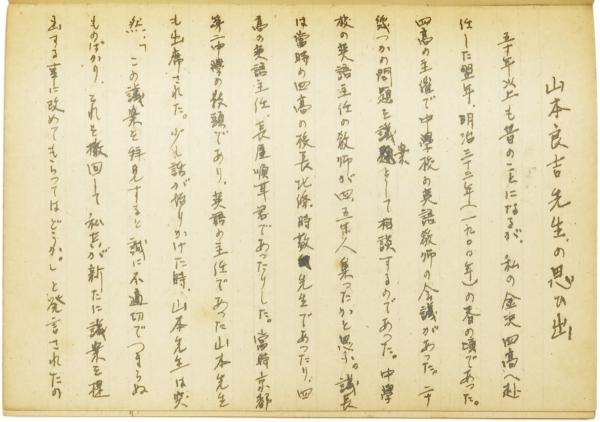 山本良吉先生の思ひ出
五十年以上も昔のことになるが、私の金沢四高へ赴
任した翌年、明治三十三年(一九〇〇年)の春の頃であった。
四高の主催で中学校の英語教師の会議があった。二十
幾つかの問題を議案として相談するのであった。中學
校の英語主任の教師が四、五十人集ったかと思ふ。議長
は當時の四高の校長北條時敬先生であったり、四
高の英語主任、長屋順耳君であったりした。當時京都
第二中學の教頭であり、英語の主任であった山本先生
も出席された。少し話が始りかけた時、山本先生は突
然、「この議案を拝見すると誠に不適切でつまらぬ
ものばかり、それを撤回して私共が新たに議案を提
出する事に改めてもらってはどうか。」と発言されたの